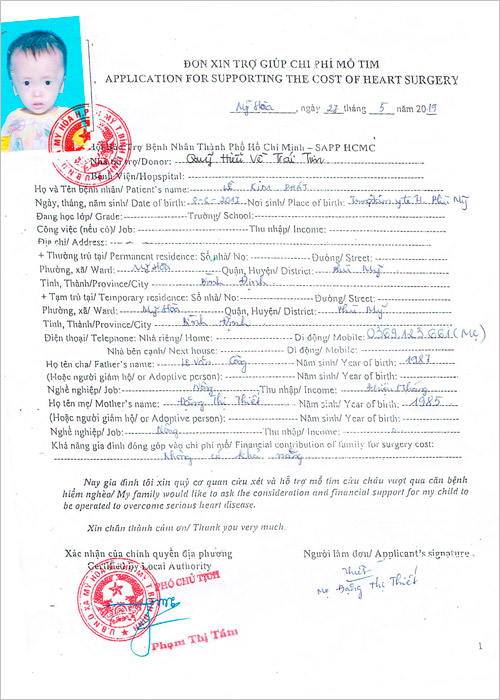 ĐƠN XIN TRỢ GIÚP CHI PHÍ MỔ TIM
APPLICATION FOR SUPPORTING THE COST OF HEART SURGERY
Mỹ Hòa, ngày 27 tháng 5 năm 2019
Hội Bảo Trợ Bệnh Nhân Thành Phố Hồ Chí Minh – SAPP HCMC
Nhà hỗ trợ/Donor: Quỹ Hiểu Về Trái Tim
Bệnh Viện/Hopspital:
Họ và Tên bệnh nhân/ Patient's name: LÊ KIM PHÁT
Ngày, tháng, năm sinh/ Date of birth: 2-6-2017 Nơi sinh/ Place of birth: Trung tâm y tế H. Phù Mỹ
Đang học lớp/ Grade: Trường/ School:
Công việc (nếu có)/ Job: Thu nhập/ Income:
Địa chỉ/ Address:
+ Thường trú tại/ Permanent residence: Số nhà/ No: Đường/ Street:
Phường, xã/ Ward: Mỹ Hòa Quận, Huyện/ District: Phù Mỹ
Tỉnh, Thành/Province/City Bình Định
+ Tạm trú tại/ Temporary residence: Số nhà/ No: Đường/ Street:
Phường, xã/ Ward: Mỹ Hòa Quận, Huyện/ District: Phù Mỹ
Tỉnh, Thành/Province/City Bình Định
Điện thoại/ Telephone: Nhà riêng/ Home: Di động/ Mobile: 0369.123.661 (Mẹ)
Nhà bên cạnh/ Next house: Di động/ Mobile:
Họ tên cha/ Father's name: Lê Văn Công Năm sinh/ Year of birth: 1987
(Hoặc người giám hộ/ or Adoptive person): Năm sinh/ Year of birth:
Nghề nghiệp/ Job: Nông Thu nhập/ Income:
Họ tên mẹ/ Mother's name: Đặng Thị Thiết Năm sinh/ Year of birth: 1985
(Hoặc người giám hộ/ or Adoptive person): Năm sinh/ Year of birth:
Nghề nghiệp/ Job: Nông Thu nhập/ Income:
Khả năng gia đình đóng góp vào chi phí mổ/ Financial contribution of family for surgery cost:
Không có khả năng
Nay gia đình tôi xin quý cơ quan cứu xét và hỗ trợ mổ tim cứu cháu vượt qua căn bệnh
hiểm nghèo/ My family would like to ask the consideration and financial support for my child to
be operated to overcome serious heart disease.
Xin chân thành cảm ơn/ Thank you very much.
Xác nhận của chính quyền địa phương
Certified by Local Authority
Người làm đơn/ Applicant's signature
PHÓ CHỦ TỊCH
Phạm Thị Tám
Thiết
Mẹ Đặng Thị Thiết
1